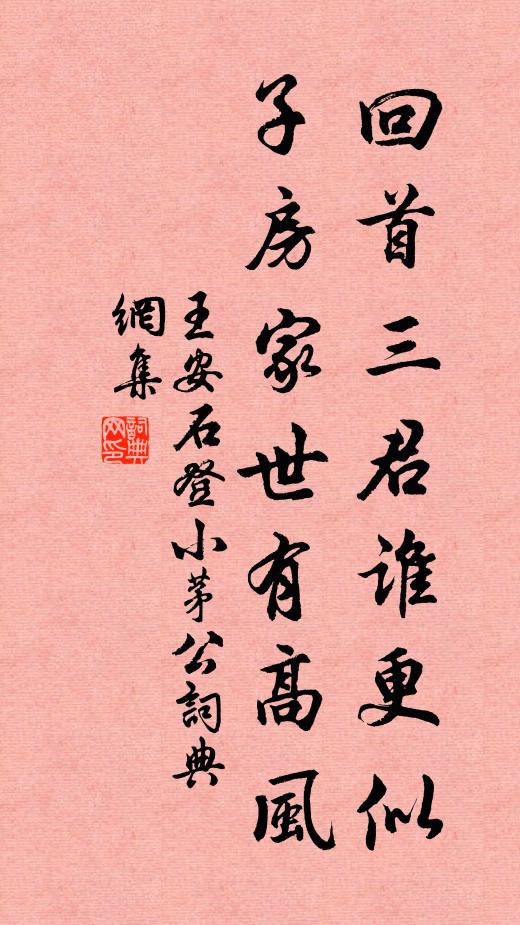 回首三君誰更似
子房家世有高風
王安石登小茅公詞典
網集
詞典網印